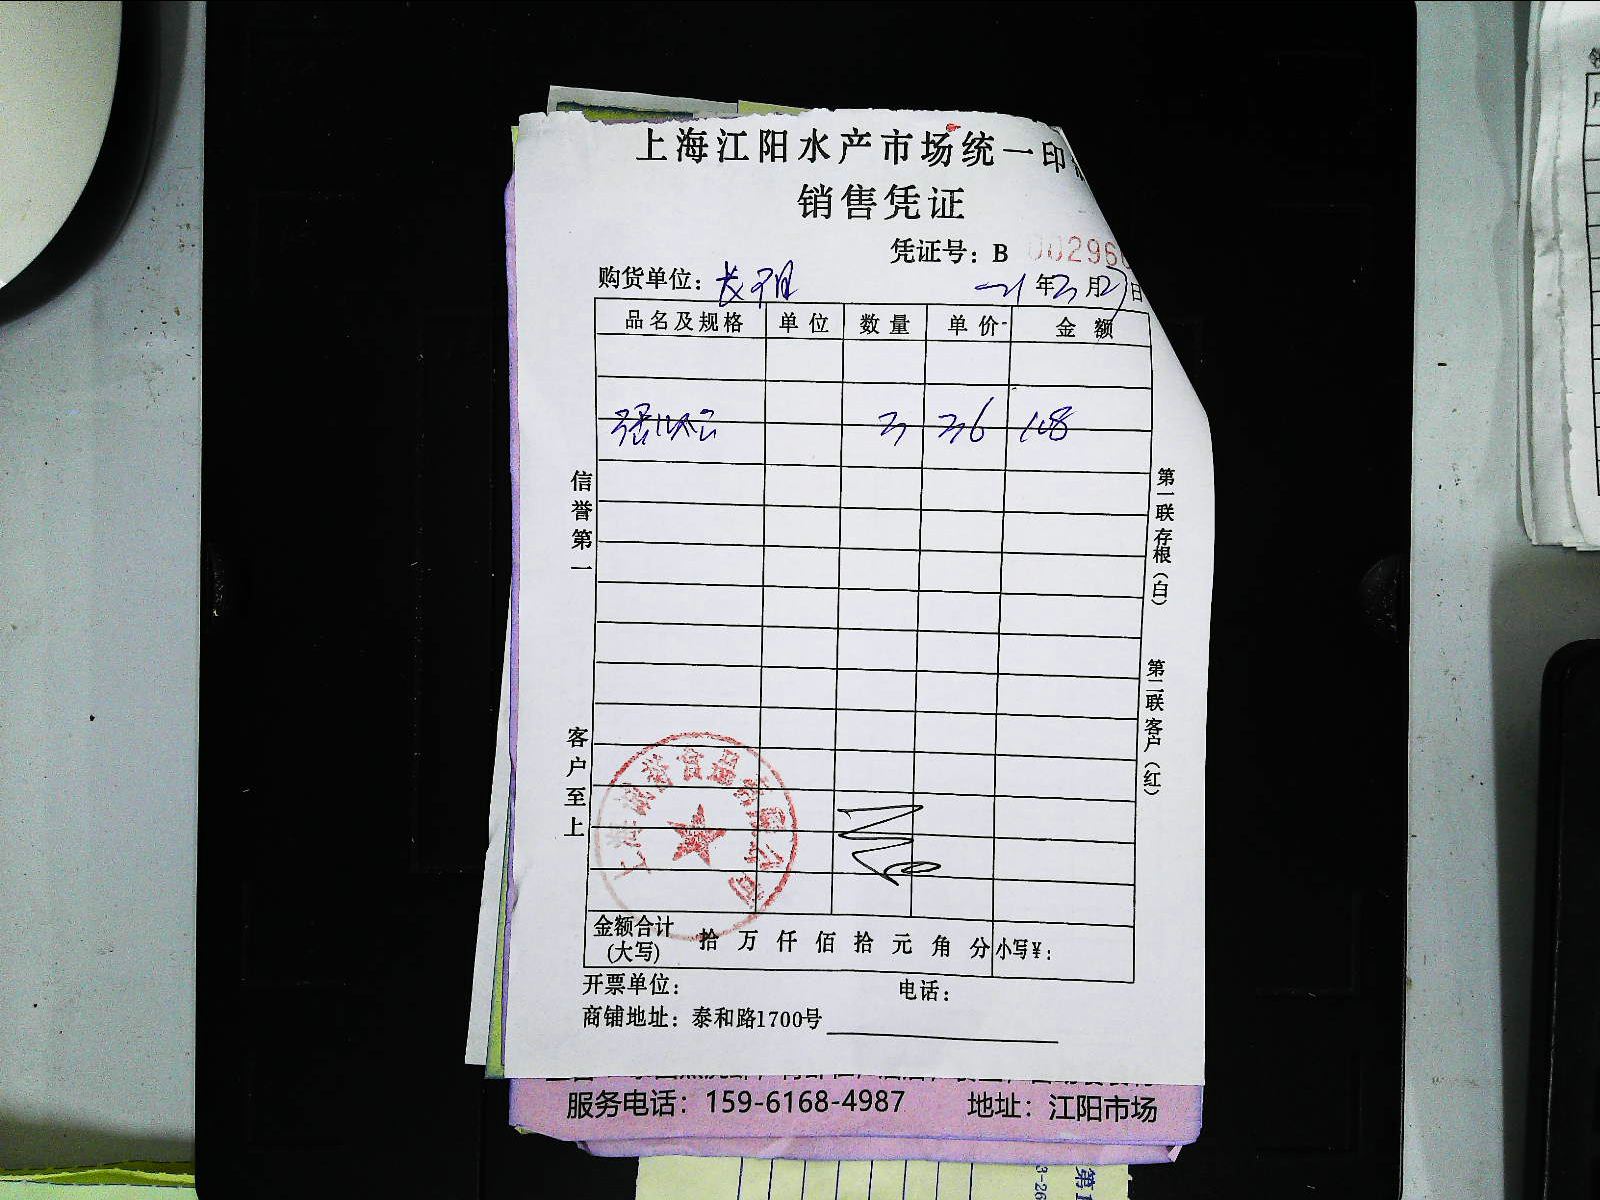 上海江阳水产市场统一印
销售凭证
凭证号：B 00296
购货单位：长阳 年 月 日
品名及规格 单位 数量 单价 金额
3 36 108
信誉第一
客户至上
第一联存根（白）
第二联客户（红）
金额合计(大写) 拾 万 仟 佰 拾 元 角 分 小写¥：
开票单位： 电话：
商铺地址：泰和路1700号
服务电话：159-6168-4987 地址：江阳市场